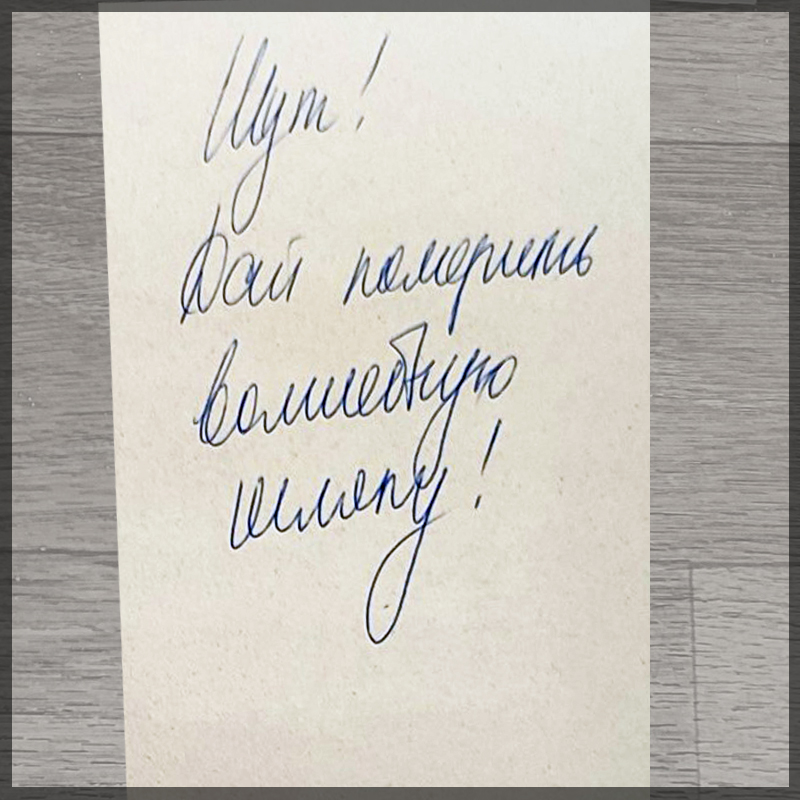 Шут!
Дай померить
волшебную
шляпу!